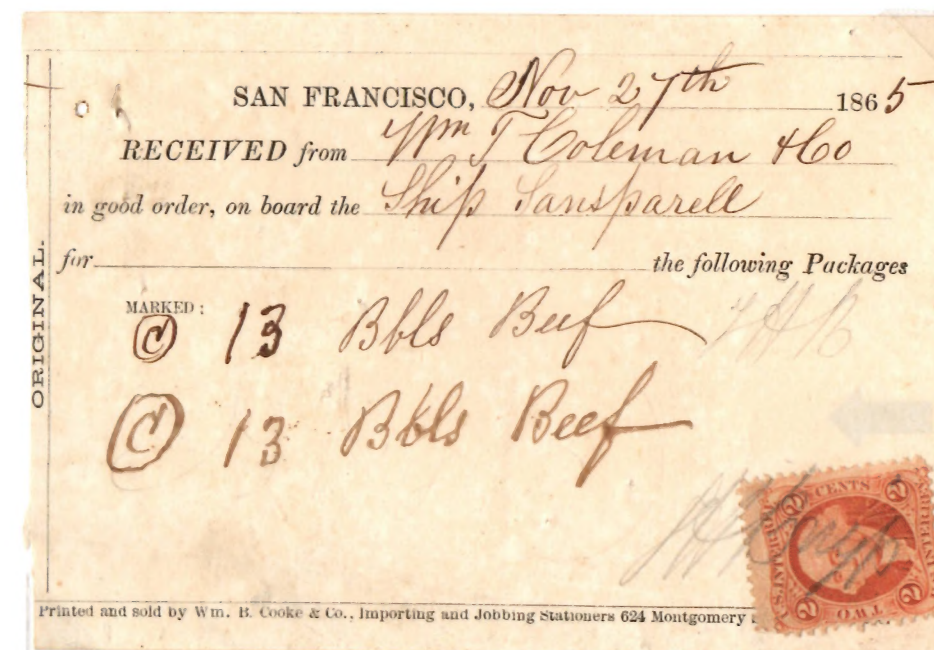 SAN FRANCISCO, Nov 27th 1865
RECEIVED from Wm T Coleman & Co
in good order, on board the Ship Sansparell
for the following Packages
MARKED:
C 13 Bbls Beef
C 13 Bbls Beef
ORIGINAL.
2 CENTS 2
U.S. INTER. REV.
2 TWO 2
Printed and sold by Wm. B. Cooke & Co., Importing and Jobbing Stationers 624 Montgomery